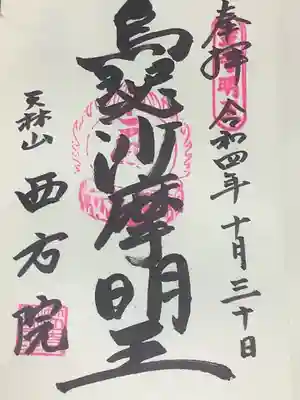 奉拝 令和四年十月三十日
烏瑟沙摩明王
天林山 西方院